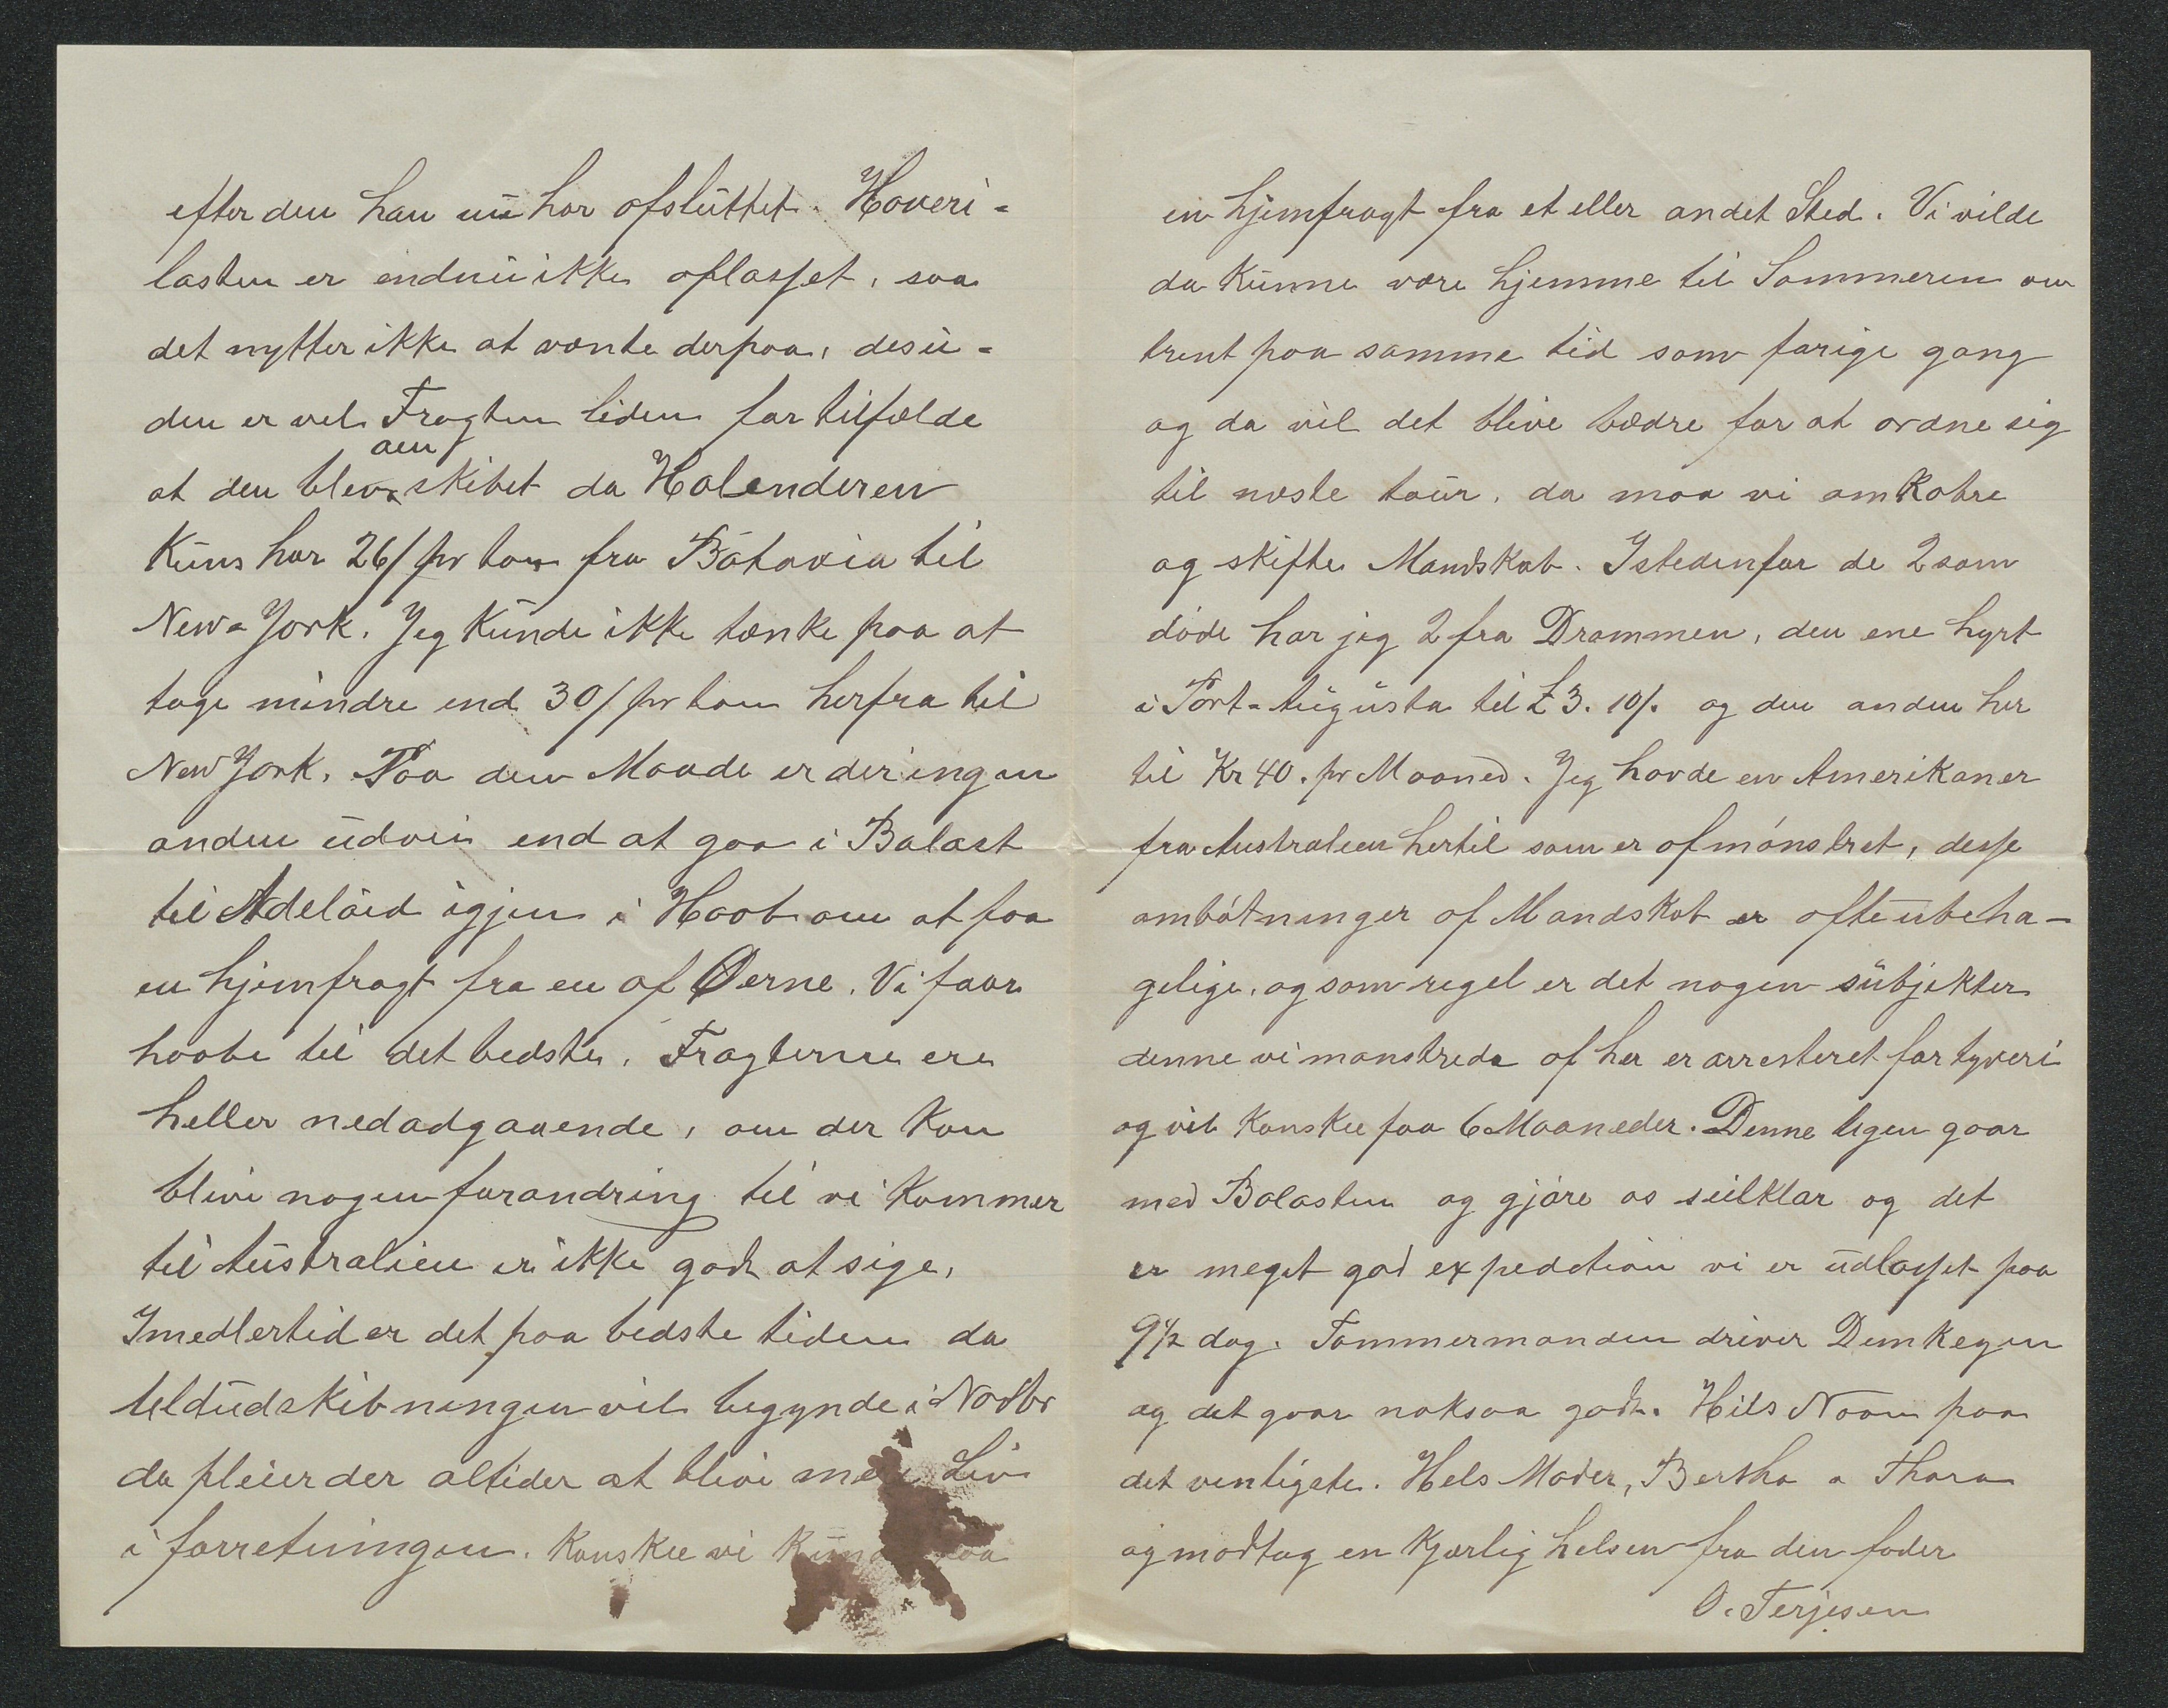 efter den han nu har afsluttet. Haveri-
lasten er endnu ikke oplasset, saa
det nytter ikke at vænte derpaa, desu-
den er vel Fragten liden for tilfælde
aen
at den blev skibet da Holenderen
Kuns har 26/ pr ton fra Batavia til
New-York. Jeg kunde ikke tænke paa at
tage mindre end 30/ pr ton herfra til
New York. Paa den Maade er der ingen
anden udvei end at gaa i Balast
til Adelaid igjen i Haab om at faa
en hjemfragt fra en af Øerne. Vi faar
haabe til det bedste. Fragterne ere
heller nedadgaaende, om der kan
blive nogen forandring til vi kommer
til Australien er ikke godt at sige,
Imedlertid er det paa bedste tiden da
Uldudskibningen vil begynde i Novbr
da pleier der altider at blive mere Liv
i forretningen. Kanskee vi kunde faa
en hjemfragt fra et eller andet Sted. Vi vilde
da kunne være hjemme til Sommeren om
trent paa samme tid som forige gang
og da vil det blive bædre for at ordne sig
til næste tour, da maa vi omkobre
og skifte Mandskab. Istedenfor de 2 som
døde har jeg 2 fra Drammen, den ene hyrt
i Port-Augusta til £3.10/. og den anden her
til Kr 40. pr Maaned. Jeg havde en Amerikaner
fra Australien hertil som er afmønstret, desse
ombøtninger af Mandskab er ofte ubeha-
gelige, og som regel er det nogen subjekter
denne vi mønstrede af her er arresteret for tyveri
og vil kanskee faa 6 Maaneder. Denne Ugen gaar
med Balasten og gjøre os seilklar og det
er meget god expedetion vi er udlasset paa
9½ dag. Tømmermanden driver Dunkegen
og det gaar noksaa godt. Hils Naan paa
det venligste. Hels Moder, Bertha a Thora
og modtag en kjærlig helsen fra din fader
O. Terjesen